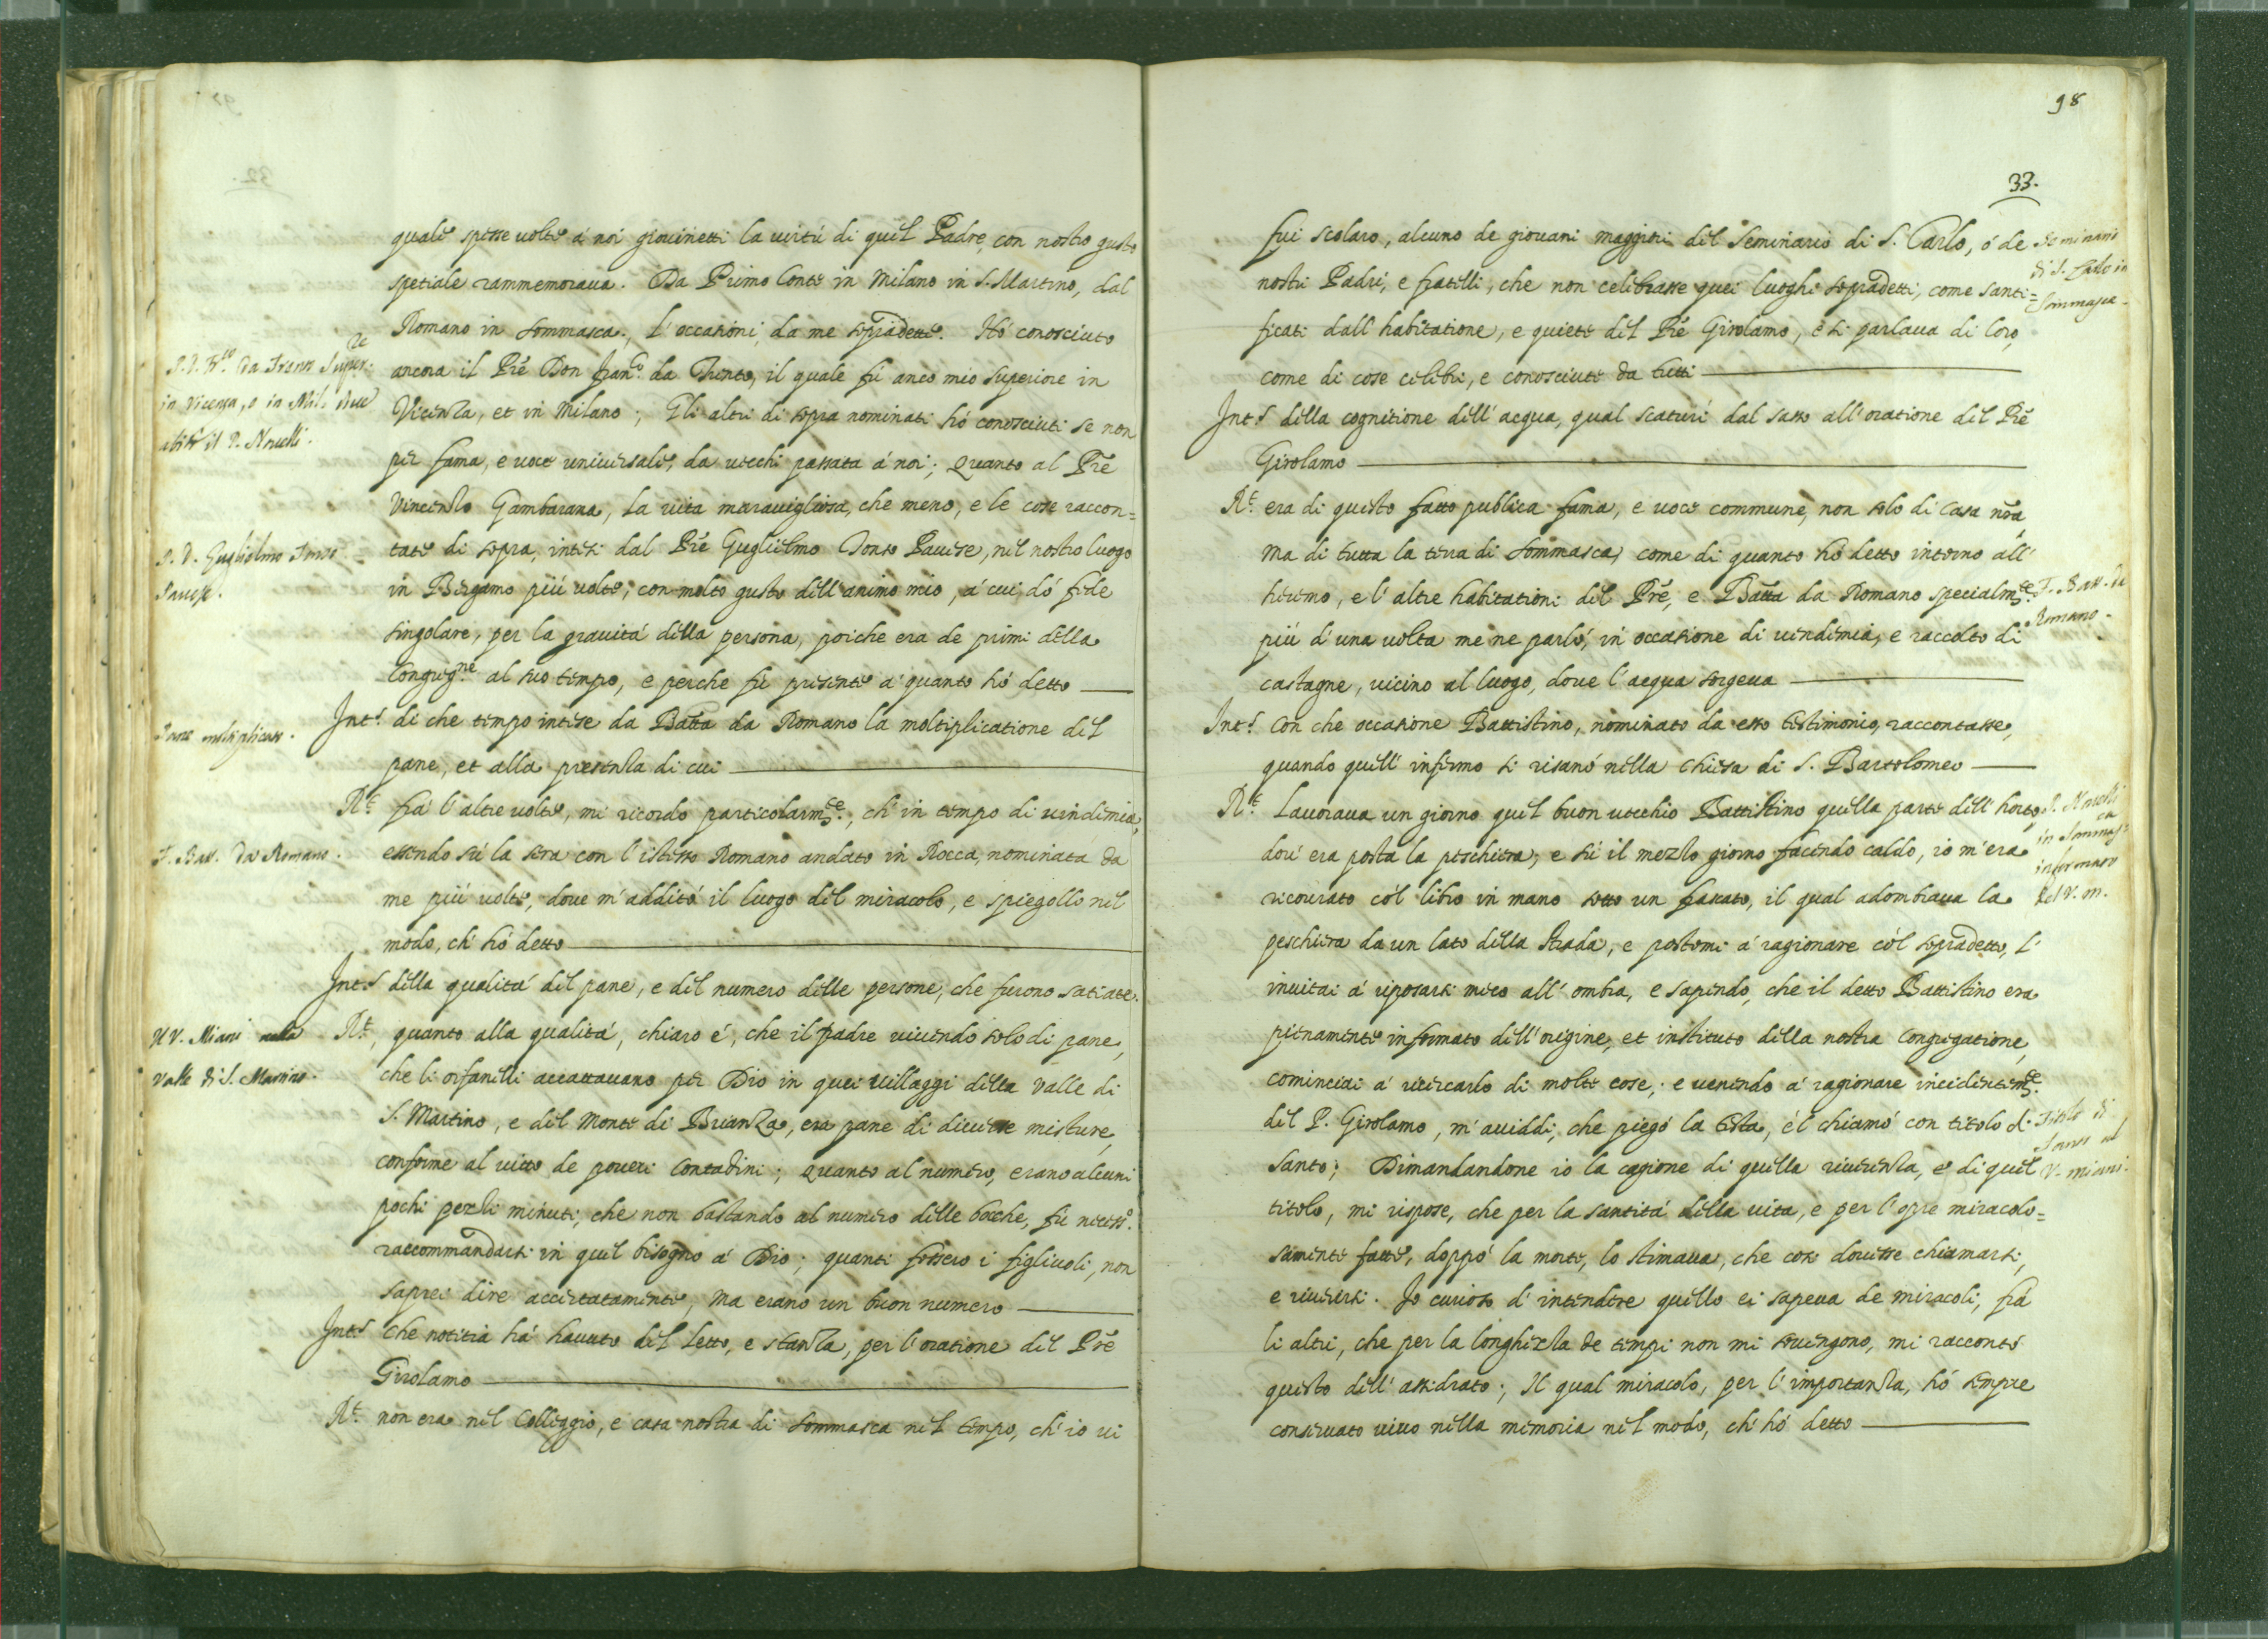 quale spesse uolte á noi giouinetti la uirtú di quel Padre, con nostro gusto
spetiale rammemoraua. Da Primo Conte in Milano in S. Martino, dal
Romano in Sommasca, l'occasioni, da me sopradette. Hó conosciuto
ancora il Prē Don Fran.co da Trento, il quale fú anco mio superiore in
Vicenza, et in Milano; Gli altri di sopra nominati hó conosciuti se non
per fama, e uoce uniuersale, da uecchi passata á noi; Quanto al Prē
Vincenzo Gambarana, la uita marauigliosa, che meno, e le cose raccon=
tate di sopra, intesi dal Prē Guglielmo Tonso Pauese, nel nostro luogo
in Bergamo piú uolte, con molto gusto dell'animo mio, á cui dó fede
singolare, per la grauitá della persona, poiche era de primi della
Congreg.ne al suo tempo, e perche fú presente á quanto hó detto
P. D. Guglielmo Tonso
Pauese.
Pane moltiplicato.
Int.s di che tempo intese da Batta da Romano la moltiplicatione del
pane, et alla presenza di cui
R.t frá l'altre uolte, mi ricordo particolarm.te, ch'in tempo di uindimia,
F. Batt. da Romano.
essendo sú la sera con l'istesso Romano andato in Rocca, nominata da
me piú uolte, doue m'additó il luogo del miracolo, e spiegollo nel
modo, ch'hó detto
Int.s della qualitá del pane, e del numero delle persone, che furono satiate.
Il V. Miani nella
Valle di S. Martino.
R.t, quanto alla qualitá, chiaro é, che il padre uiuendo solo di pane,
che li orfanelli accattauano per Dio in quei Villaggi della Valle di
S. Martino, e del Monte di Brianza, era pane di diuerse misture,
conforme al uitto de poueri Contadini; Quanto al numero, erano alcuni
pochi pezzi minuti, che non bastando al numero delle bocche, fú necess.o
raccommandarsi in quel bisogno á Dio; quanti fossero i figliuoli, non
saprei dire accertatamente, ma erano un buon numero
Int.s che notitia há hauuto del letto, e stanza, per l'oratione del Prē
Girolamo
R.t non era nel Colleggio, e casa nostra di Sommasca nel tempo, ch'io ui
98
33.
fui scolaro, alcuno de giouani maggiori del Seminario di S. Carlo, ó de
nostri Padri, e fratelli, che non celebrasse quei luoghi sopradetti, come santi=
ficati dall'habitatione, e quiete del Prē Girolamo, e si parlaua di loro
come di cose celebri, e conosciute da tutti
Seminario
di S. Carlo in
Sommasca.
Int.s della cognitione dell'acqua, qual scaturí dal sasso all'oratione del Prē
Girolamo
R.t era di questo fatto publica fama, e uoce commune, non solo di Casa nrā,
ma di tutta la terra di Sommasca, come di quanto hó detto intorno all'
heremo, e l'altre habitationi del Prē, e Batta da Romano specialm.te
piú d'una uolta me ne parló, in occasione di uendemia, e raccolto di
castagne, uicino al luogo, doue l'acqua sorgeua
F. Batt. da
Romano.
Int.s con che occasione Battistino, nominato da esso testimonio, raccontasse,
quando quell'infermo si risanó nella Chiesa di S. Bartolomeo
R.t Lauoraua un giorno quel buon uecchio Battistino quella parte dell'horto,
dou'era posta la peschiera, e sú il mezzo giorno facendo caldo, io m'era
ricourato có'l libro in mano sotto un frassato, il qual adombraua la
peschiera da un lato della strada, e postomi á ragionare có'l sopradetto, l'
inuitai á riposarsi meco all'ombra, e sapendo, che il detto Battistino era
pienamente informato dell'origine, et instituto della nostra Congregatione,
cominciai á ricercarlo di molte cose; e uenendo á ragionare incidentem.te
del P. Girolamo, m'auiddi, che piegó la testa, é'l chiamó con titolo di
Santo; Dimandandone io la cagione di quella riuerenza, e di quel
titolo, mi rispose, che per la santitá della uita, e per l'opre miracolo=
samente fatte, doppó la morte, lo stimaua, che cosi douesse chiamarsi,
e riuerirsi. Io curioso d'intendere quello ei sapeua de miracoli, frá
li altri, che per la longhezza de tempi non mi souengono, mi raccontó
questo dell'assidrato; Il qual miracolo, per l'importanza, hó sempre
conseruato uiuo nella memoria nel modo, ch'hó detto
P. Nouelli
in Sommasca
informato
del V. M.
Titolo di
Santo al
V. Miani.